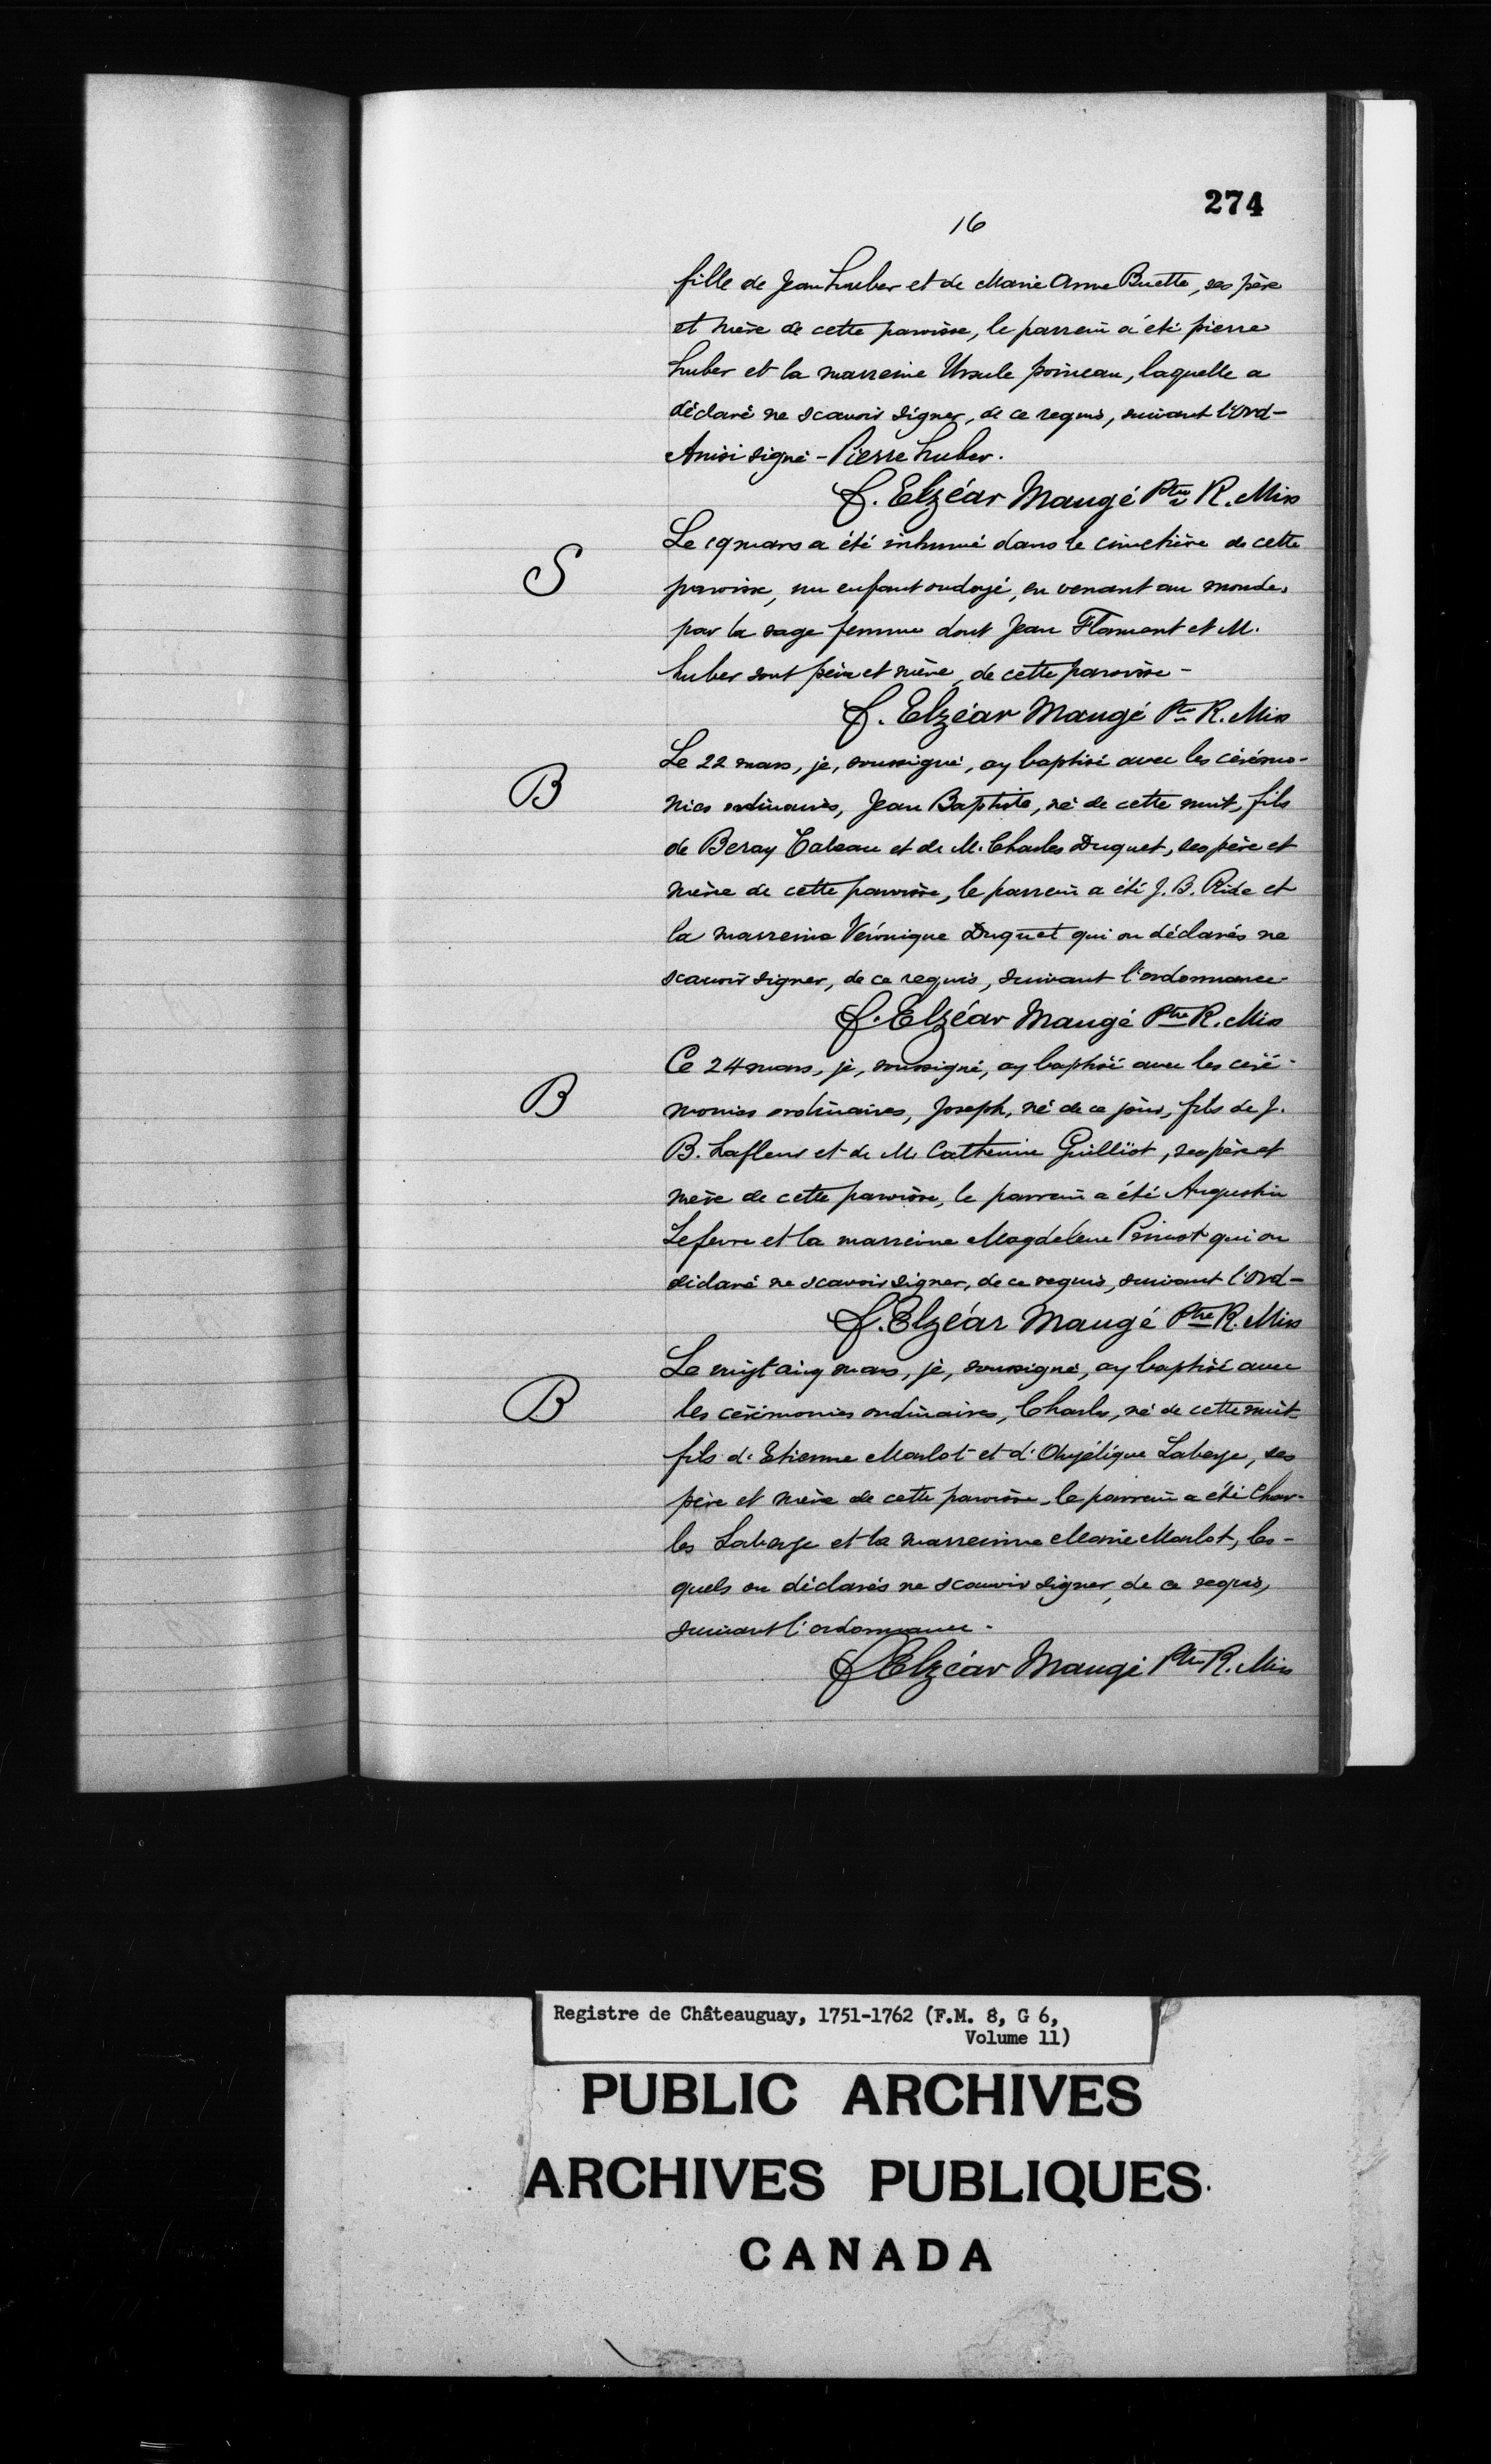 274
16
fille de Jean huber et de Marie Anne Buette, ses père
et mère de cette paroisse, le parrein a été pierre
huber et la marreine Ursule poineau, laquelle a
déclaré ne scavoir signer, de ce requis, suivant l'Ord-
Ainsi signé - Pierre huber.
f. Elzéar Maugé Ptre R. Miss
S
Le 19 mars a été inhumé dans le cimetière de cette
paroisse, un enfant ondoyé, en venant au monde,
par la sage femme dont Jean Flament et M.
huber sont père et mère, de cette paroisse -
f. Elzéar Maugé Ptre R. Miss
B
Le 22 mars, je, soussigné, ay baptisé avec les cérémo-
nies ordinaires, Jean Baptiste, né de cette nuit, fils
de Beray Tabeau et de M. Charles Duquet, ses père et
mère de cette paroisse, le parrein a été J. B. Ride et
la marreine Véronique Duquet qui on déclarés ne
scavoir signer, de ce requis, suivant l'ordonnance
f. Elzéar Maugé Ptre R. Miss
B
Ce 24 mars, je, soussigné, ay baptisé avec les céré-
monies ordinaires, Joseph, né de ce jour, fils de J.
B. Lafleur et de M. Catherine Guilliot, ses père et
mère de cette paroisse, le parrein a été Augustin
Lefevre et la marreine Magdelene Primot qui on
déclaré ne scavoir signer, de ce requis, suivant l'Ord-
f. Elzéar Maugé Ptre R. Miss
B
Le vingt cinq mars, je, soussigné, ay baptisé avec
les cérémonies ordinaires, Charles, né de cette nuit
fils d'Etienne Marlot et d'Angélique Laberge, ses
père et mère de cette paroisse, le parrein a été Char-
les Laberge et la marreinne Marie Marlot, les-
quels on déclarés ne scavoir signer, de ce requis,
suivant l'ordonnance -
f Elzéar Maugé Ptre R. Miss
Registre de Châteauguay, 1751-1762 (F.M. 8, G 6,
Volume 11)
PUBLIC ARCHIVES
ARCHIVES PUBLIQUES
CANADA